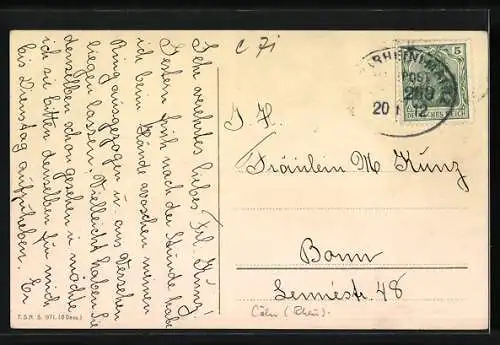 Sehr verehrtes liebes Frl. Kunz!
Gestern früh nach der Stunde habe
ich beim Hände waschen meinen
Ring ausgezogen u. aus Versehen
liegen lassen. Vielleicht haben Sie
denselben schon gesehen u. möchte
ich Sie bitten denselben für mich
bis Dienstag aufzuheben. Er
C 71
5
DEUTSCHES REICH
POST
20 1 12
I. H.
Fräulein M Kunz
Bonn
Lennéstr. 48
Cöln (Rhein)
T.S.N. S. 971. (6 Dess.)